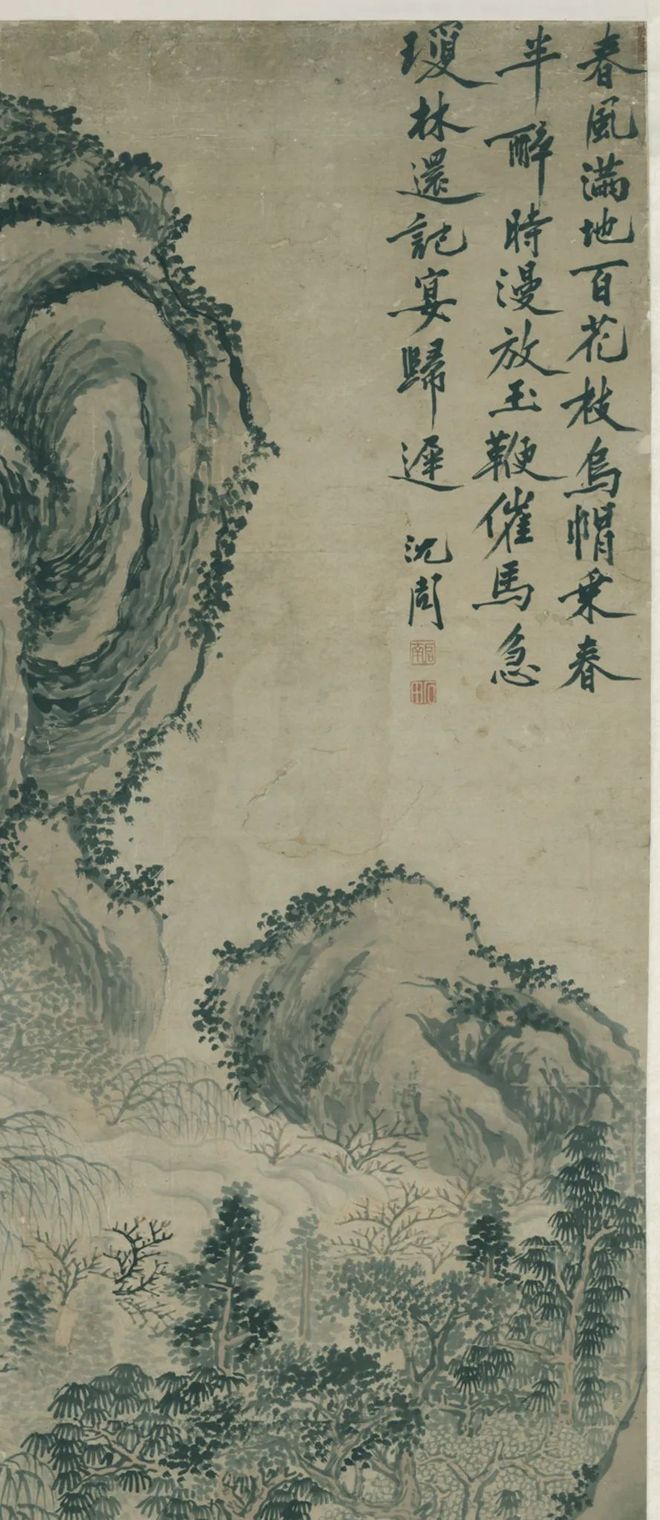 春風滿地百花枝烏帽乗春
半醉時漫放玉鞭催馬急
瓊林還記宴歸遲
沈周
啓南